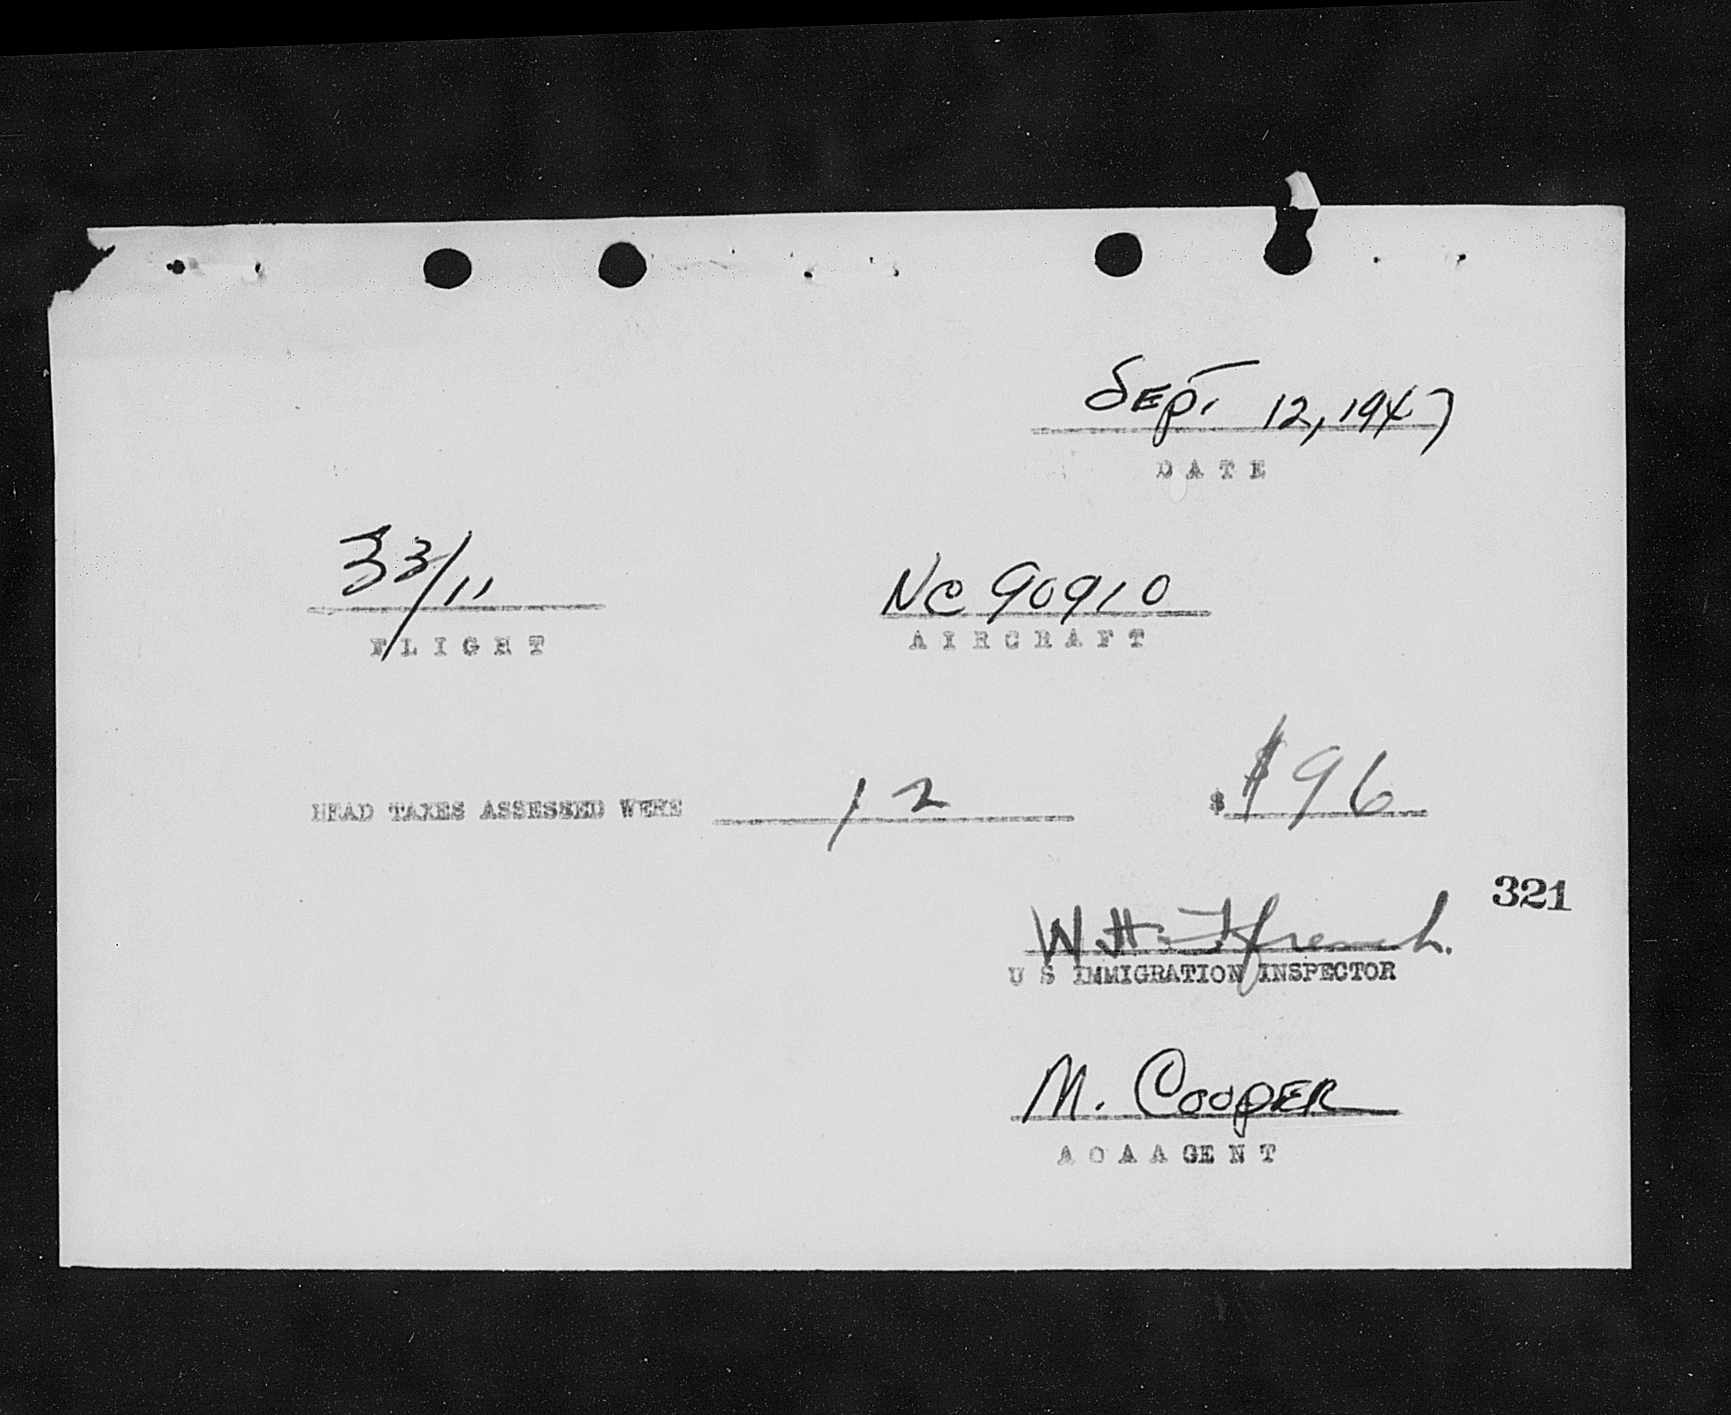 Sept. 12, 1947
DATE
33/11
NC 90910
FLIGHT
AIRCRAFT
HEAD TAXES ASSESSED WERE 12 $ $96
321
W. H. French.
U S IMMIGRATION INSPECTOR
M. COOPER
A O A AGENT